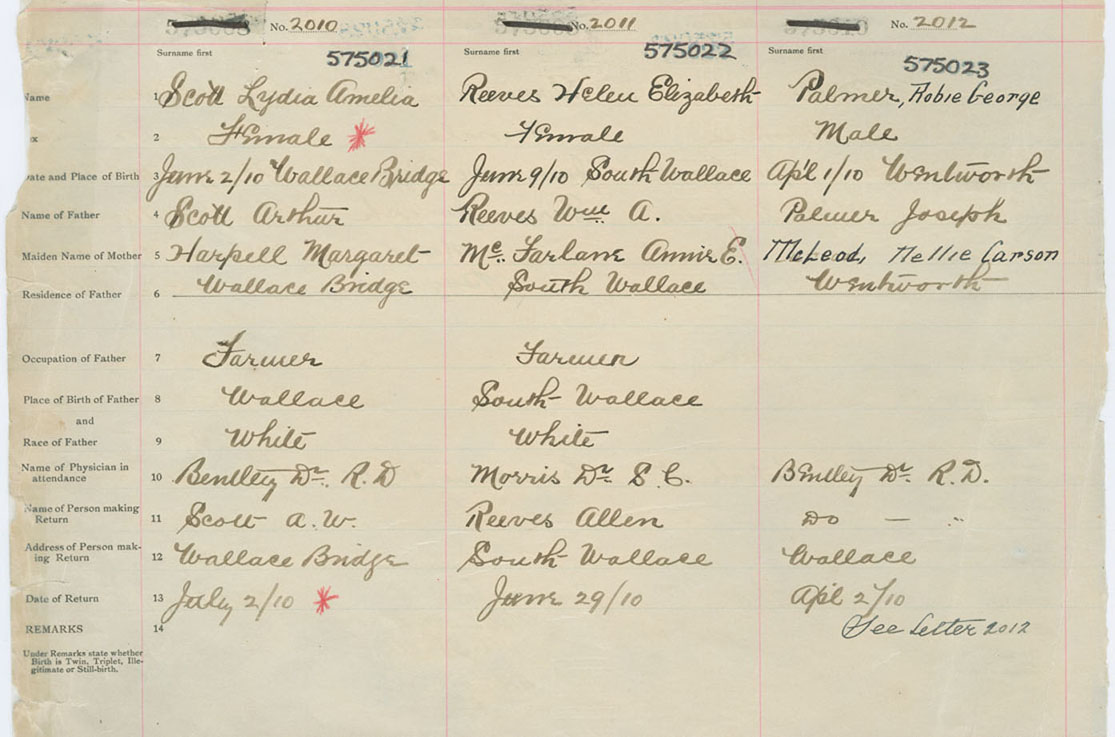 No. 2010 No. 2011 No. 2012
Surname first Surname first Surname first
575021 575022 575023
Name 1 Scott Lydia Amelia Reeves Helen Elizabeth Palmer, Robie George
2 Female * Female Male
Date and Place of Birth 3 June 2/10 Wallace Bridge June 9/10 South Wallace Apl 1/10 Wentworth
Name of Father 4 Scott Arthur Reeves Wm A. Palmer Joseph
Maiden Name of Mother 5 Harpell Margaret Mc. Farlane Annie E. McLeod, Nellie Carson
Residence of Father 6 Wallace Bridge South Wallace Wentworth
Occupation of Father 7 Farmer Farmer
Place of Birth of Father 8 Wallace South Wallace
and
Race of Father 9 White White
Name of Physician in
attendance 10 Bentley Dr. R. D Morris Dr. S. C. Bentley Dr. R. D.
Name of Person making
Return 11 Scott A. W. Reeves Allen Do — "
Address of Person mak-
ing Return 12 Wallace Bridge South Wallace Wallace
Date of Return 13 July 2/10 * June 29/10 Apl 2/10
REMARKS 14 See Letter 2012
Under Remarks state whether
Birth is Twin, Triplet, Ille-
gitimate or Still-birth.